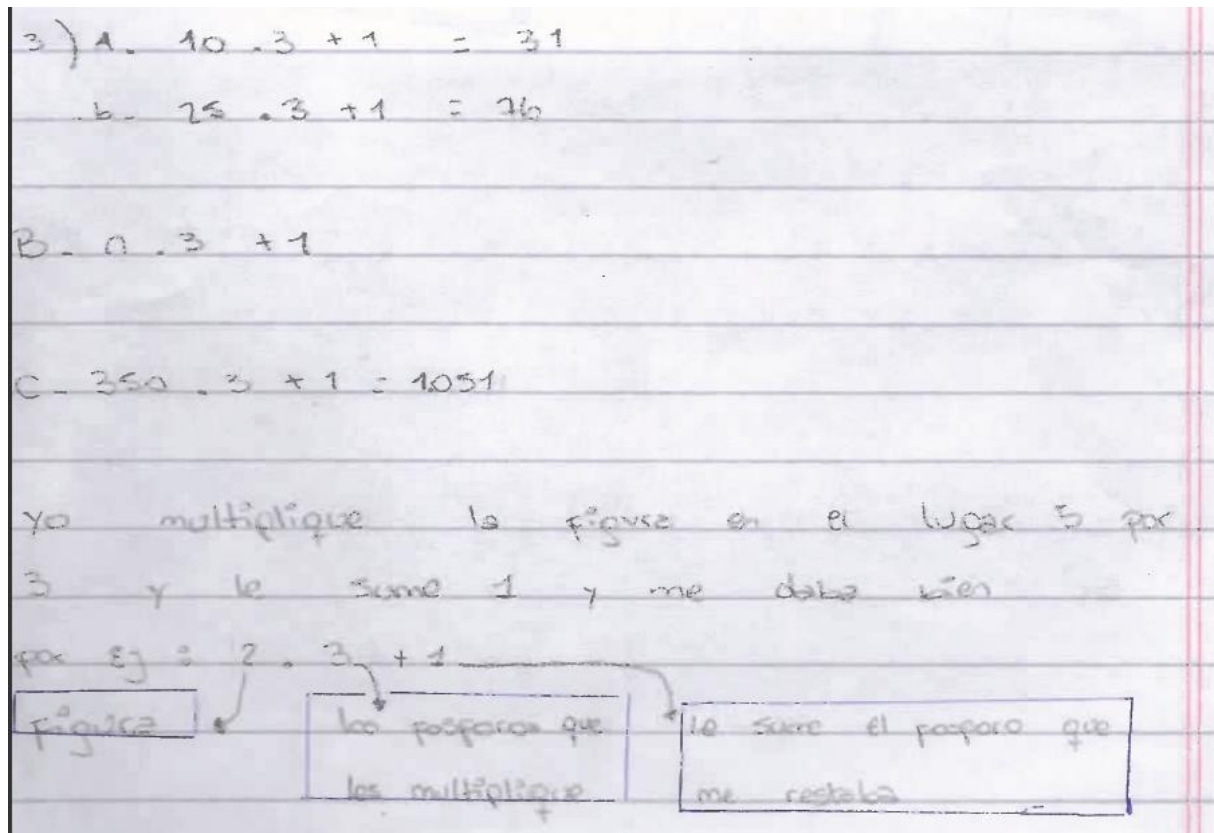 3) A. 10 . 3 + 1 = 31
.b- 25 . 3 + 1 = 76
B- n . 3 + 1
C- 350 . 3 + 1 = 1051
Yo multiplique la figura en el lugar 5 por
3 y le sume 1 y me daba bien
por Ej : 2 . 3 + 1
Figura los fosforos que le sume el fosforo que
les multiplique me restaba